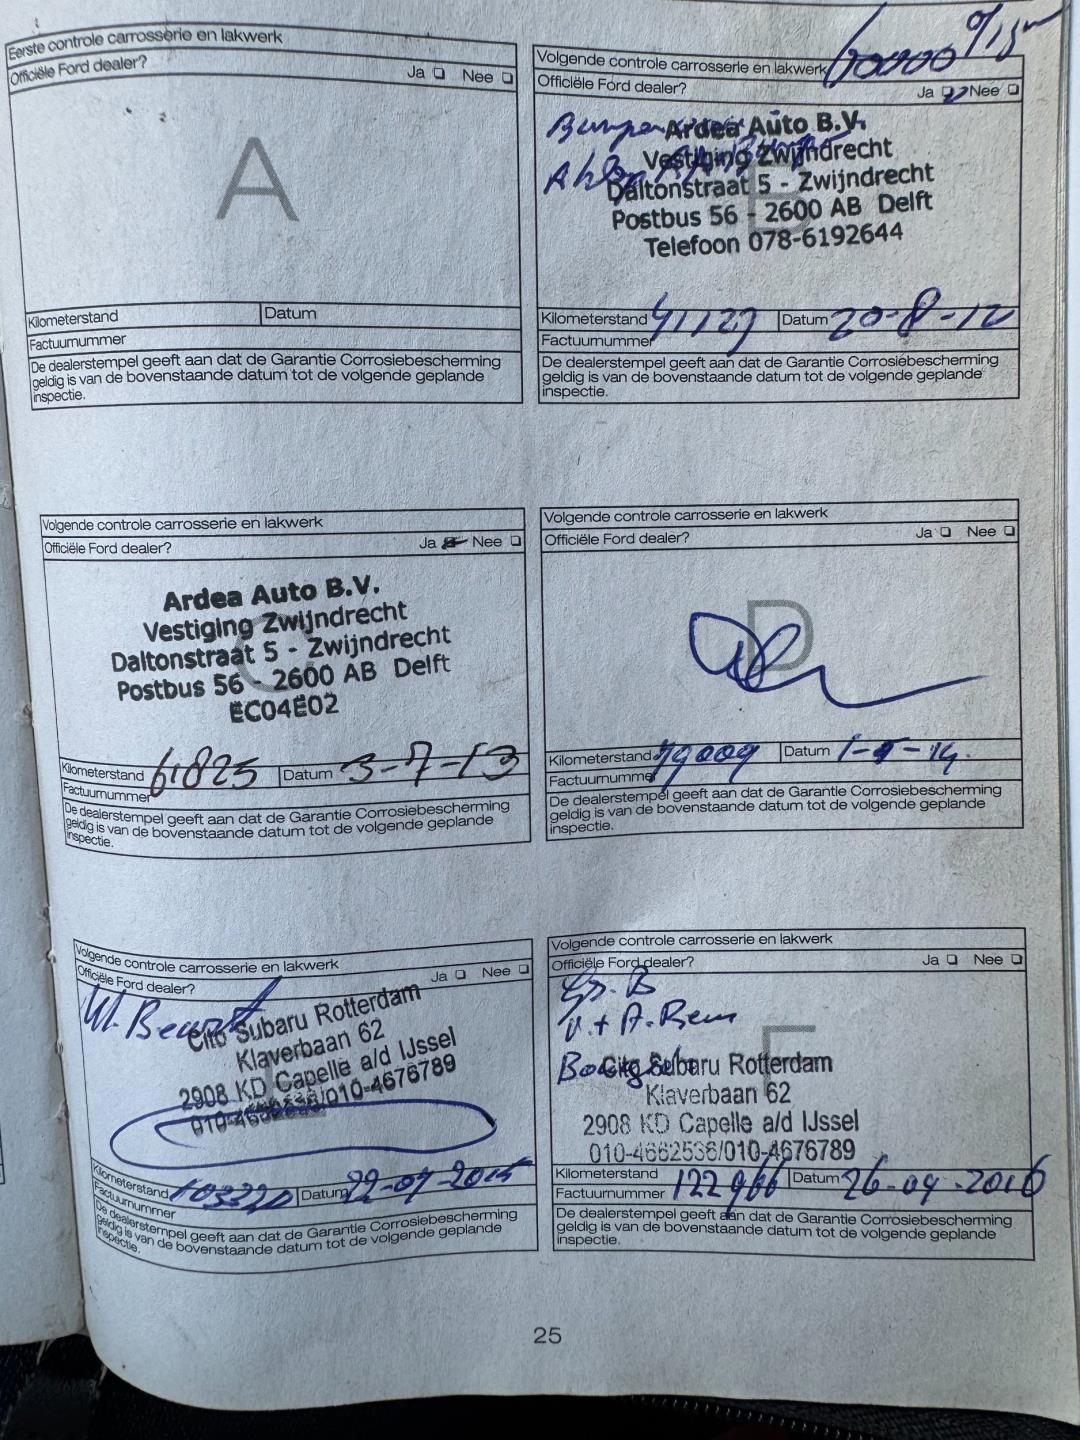 Eerste controle carrosserie en lakwerk
Officiële Ford dealer? Ja Nee
A
Kilometerstand Datum
Factuurnummer
De dealerstempel geeft aan dat de Garantie Corrosiebescherming
geldig is van de bovenstaande datum tot de volgende geplande
inspectie.
60000
Volgende controle carrosserie en lakwerk
Officiële Ford dealer? Ja Nee
B
Bumper
Ardea Auto B.V.
Vestiging Zwijndrecht
Daltonstraat 5 - Zwijndrecht
Postbus 56 - 2600 AB Delft
Telefoon 078-6192644
Kilometerstand 41127 Datum 20-8-12
Factuurnummer
De dealerstempel geeft aan dat de Garantie Corrosiebescherming
geldig is van de bovenstaande datum tot de volgende geplande
inspectie.
Volgende controle carrosserie en lakwerk
Officiële Ford dealer? Ja Nee
C
Ardea Auto B.V.
Vestiging Zwijndrecht
Daltonstraat 5 - Zwijndrecht
Postbus 56 - 2600 AB Delft
EC04E02
Kilometerstand 61825 Datum 3-7-13
Factuurnummer
De dealerstempel geeft aan dat de Garantie Corrosiebescherming
geldig is van de bovenstaande datum tot de volgende geplande
inspectie.
Volgende controle carrosserie en lakwerk
Officiële Ford dealer? Ja Nee
D
Kilometerstand 79009 Datum
Factuurnummer
De dealerstempel geeft aan dat de Garantie Corrosiebescherming
geldig is van de bovenstaande datum tot de volgende geplande
inspectie.
Volgende controle carrosserie en lakwerk
Officiële Ford dealer? Ja Nee
Cito Subaru Rotterdam
Klaverbaan 62
2908 KD Capelle a/d IJssel
010-4662536/010-4676789
Kilometerstand 103320 Datum 22-07-2015
Factuurnummer
De dealerstempel geeft aan dat de Garantie Corrosiebescherming
geldig is van de bovenstaande datum tot de volgende geplande
inspectie.
Volgende controle carrosserie en lakwerk
Officiële Ford dealer? Ja Nee
F
V.+A. Rem
Cito Subaru Rotterdam
Klaverbaan 62
2908 KD Capelle a/d IJssel
010-4662536/010-4676789
Kilometerstand 122966 Datum 26-04-2016
Factuurnummer
De dealerstempel geeft aan dat de Garantie Corrosiebescherming
geldig is van de bovenstaande datum tot de volgende geplande
inspectie.
25